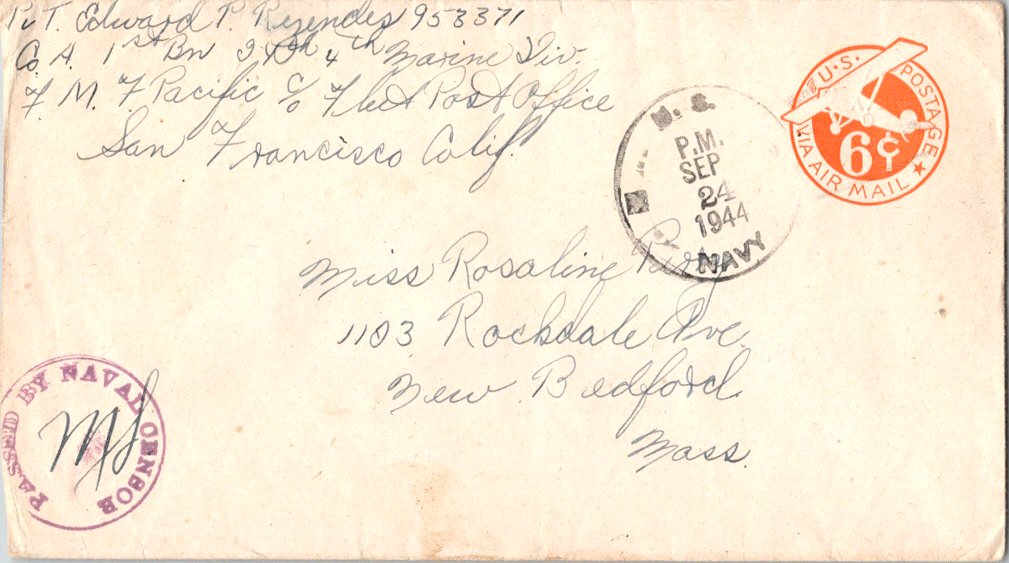 Pvt. Edward P. Rezendes 953371
Co. A. 1st Bn 24th 4th Marine Div.
F. M. F Pacific c/o Fleet Post Office
San Francisco Calif.
U.S. POSTAGE
6¢
VIA AIR MAIL
U. S.
P.M.
SEP
24
1944
NAVY
Miss Rosaline
1103 Rockdale Ave.
New Bedford
Mass.
PASSED BY NAVAL CENSOR